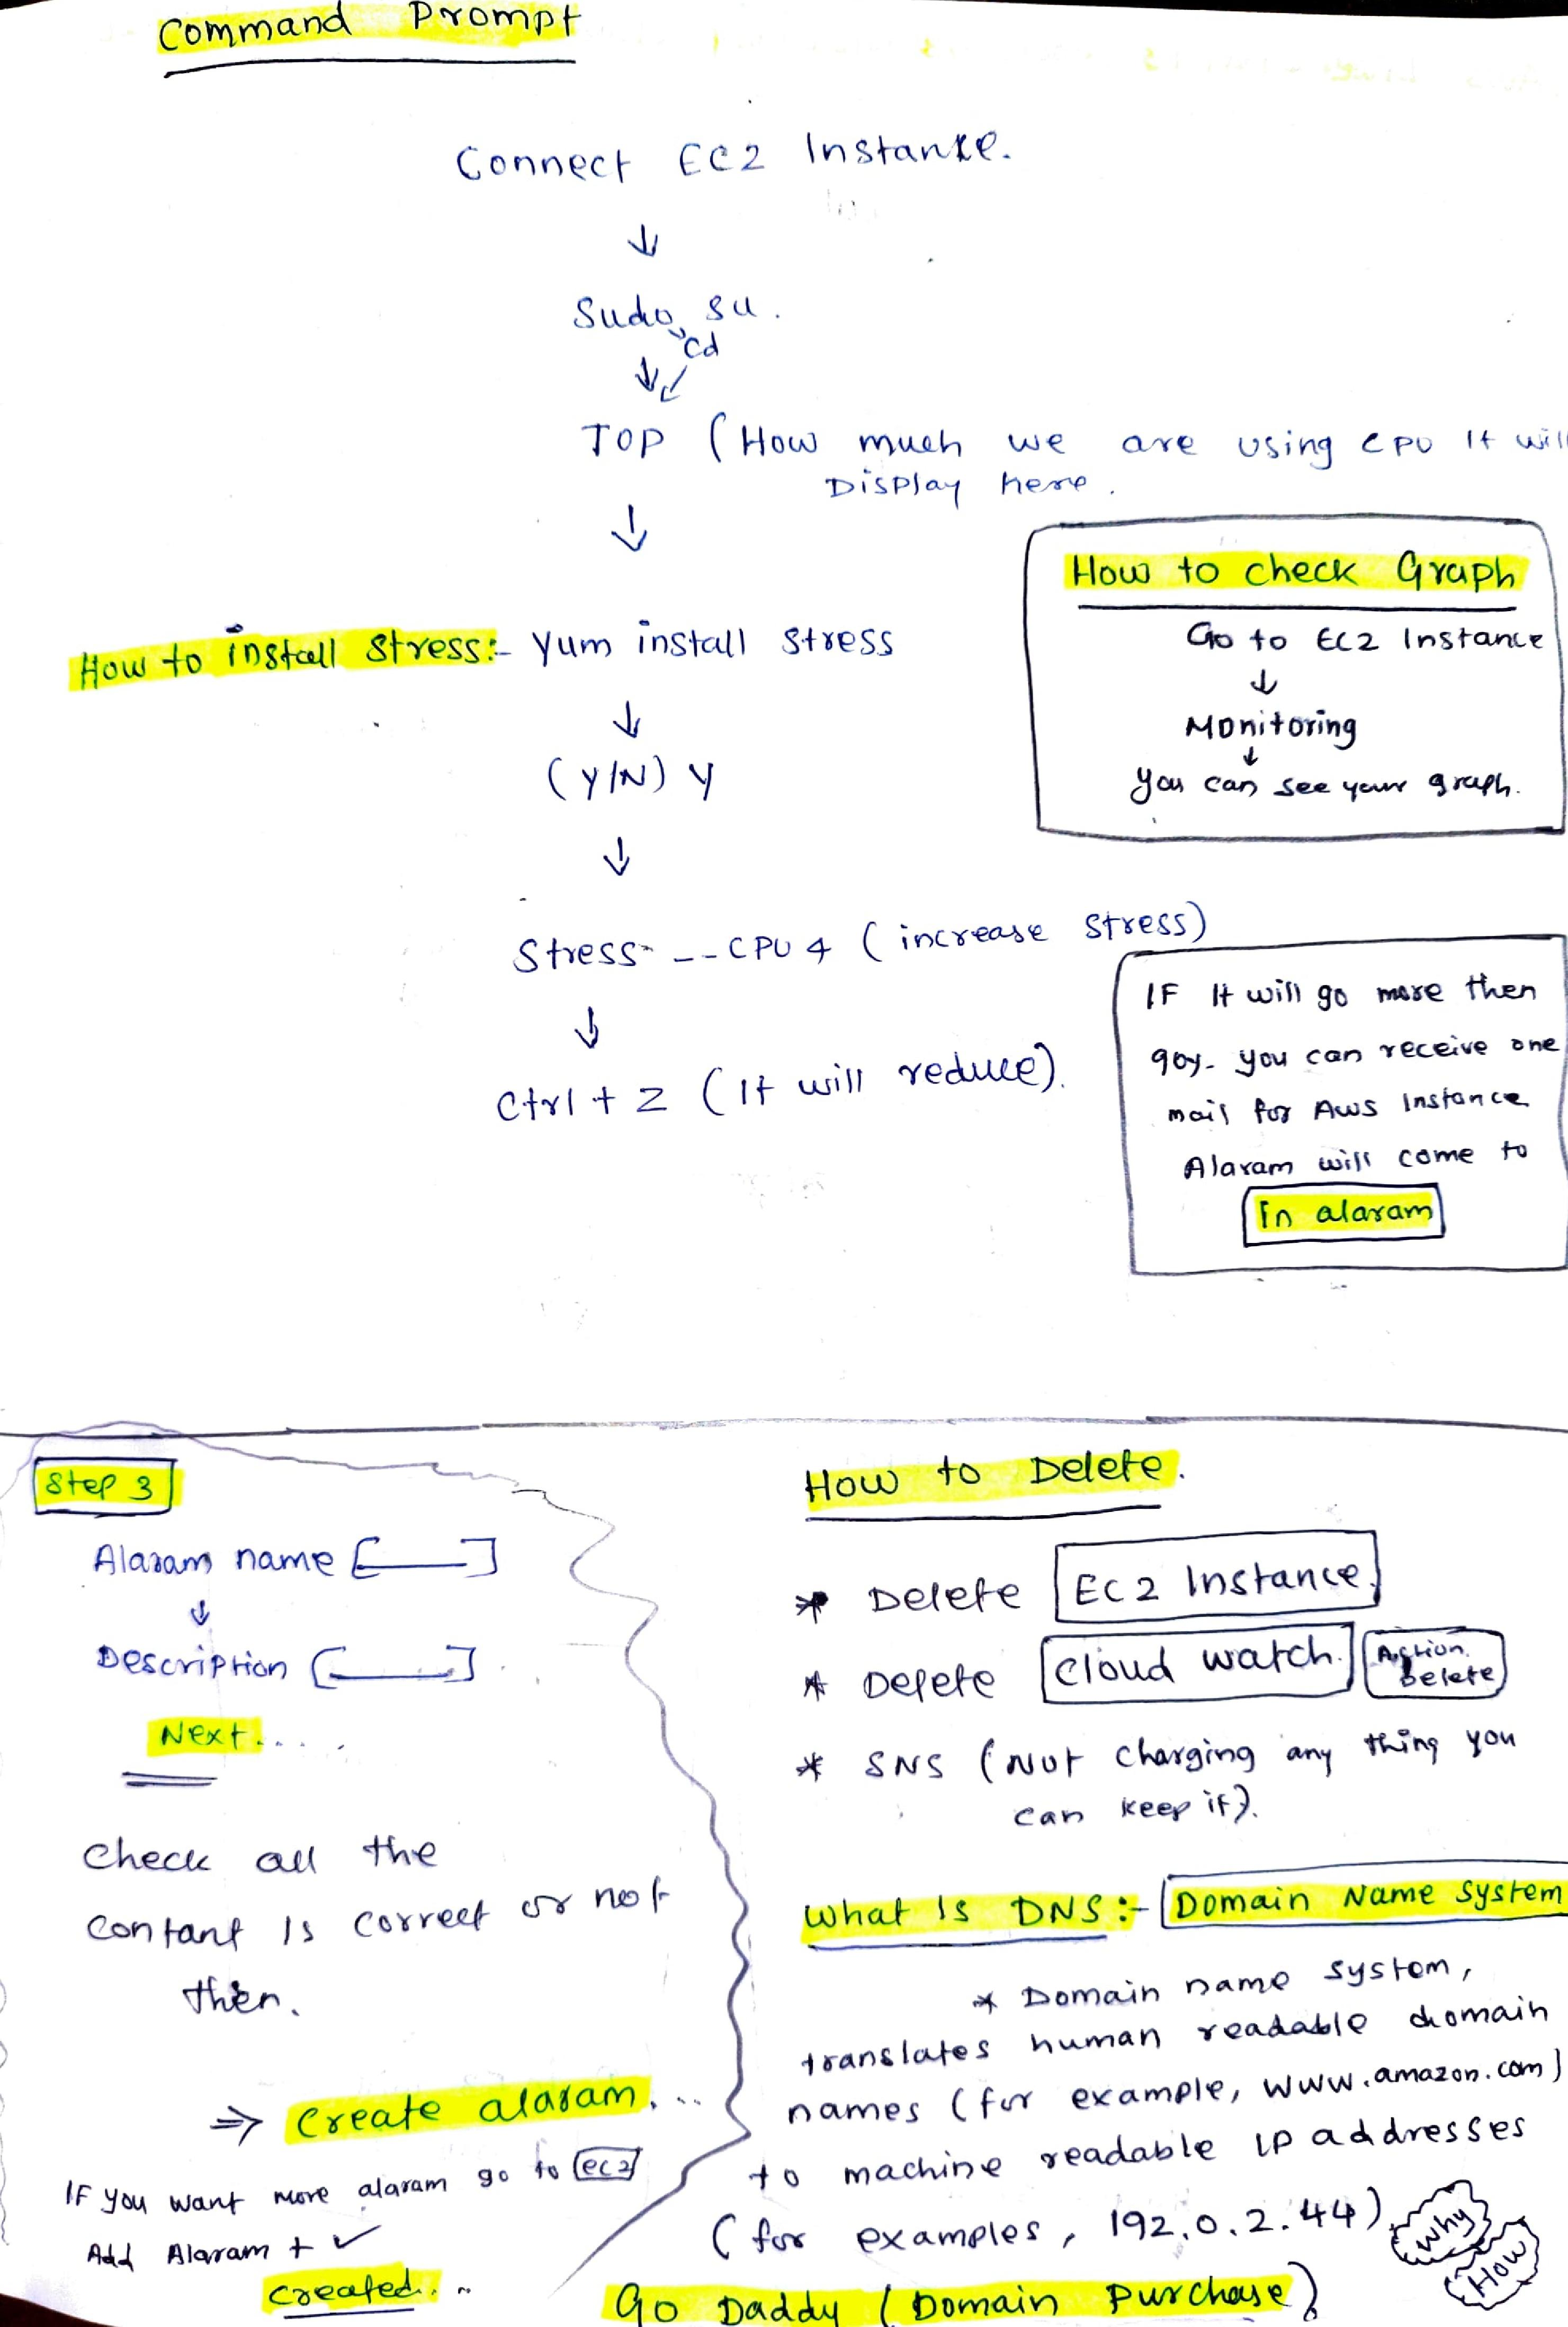 Command Prompt
Connect EC2 Instance.
↓
Sudo su.
cd
↓
TOP (How much we are using CPU It will
Display here.
↓
How to install Stress:- Yum install stress
↓
(Y/N) Y
↓
Stress - --CPU 4 (increase stress)
↓
Ctrl + Z (It will reduce).
How to check Graph
Go to EC2 Instance
↓
Monitoring
↓
You can see your graph.
IF It will go more then
you can receive one
mail for AWS Instance
Alaram will come to
In alaram
Step 3
Alaram name [____]
↓
Description [____]
Next....
Check all the
Contant Is correct or not
then.
⇒ Create alaram...
IF you want more alaram go to ec2
Add Alaram + ✓
Created...
How to Delete.
* Delete EC2 Instance.
* Delete Cloud watch. Action Delete
* SNS (Not charging any thing you
can keep it).
What Is DNS:- Domain Name System
* Domain name system,
translates human readable domain
names (for example, www.amazon.com)
to machine readable IP addresses
(for examples, 192.0.2.44)
Why
How
Go Daddy (Domain Purchase)